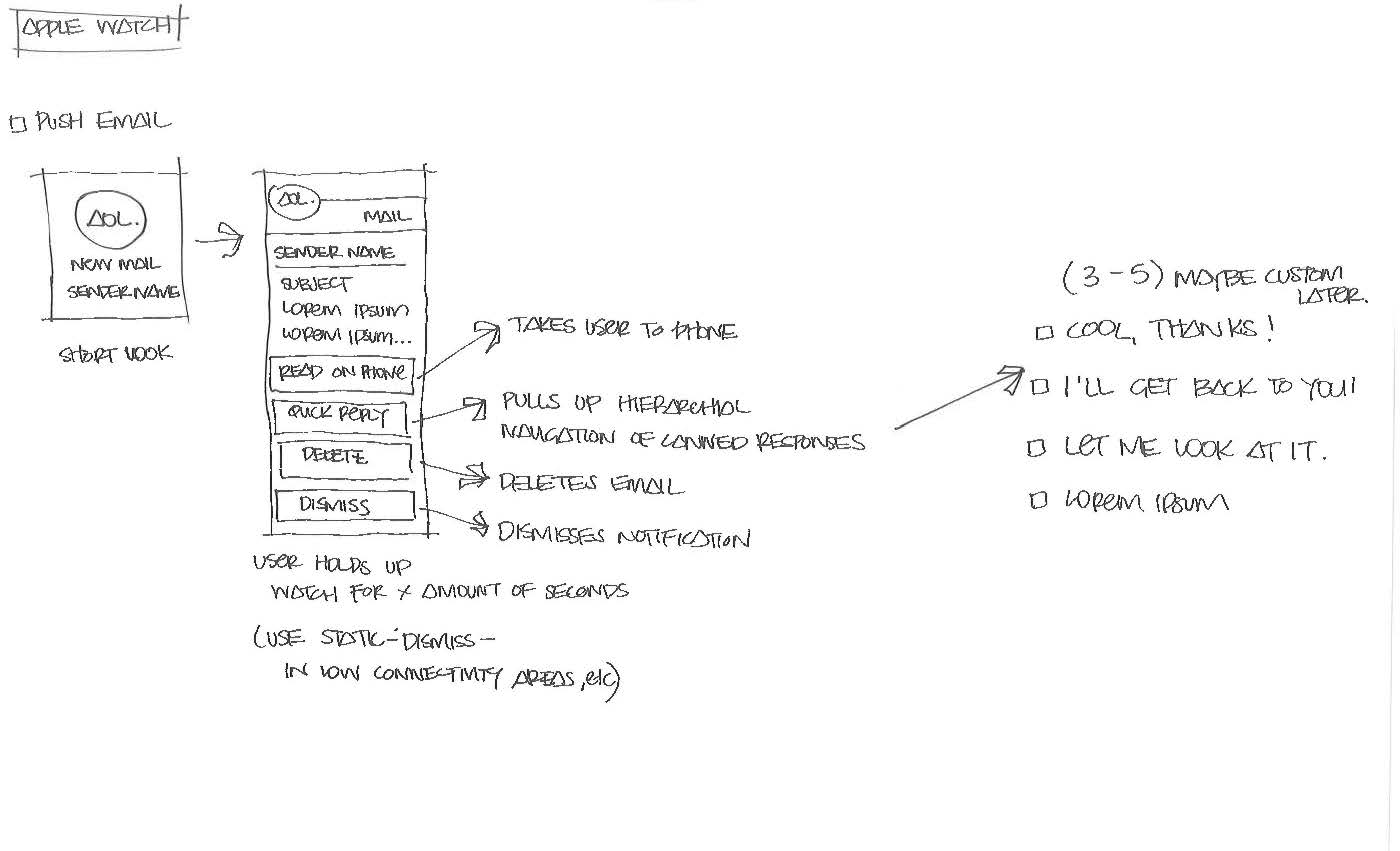 APPLE WATCH
PUSH EMAIL
AOL.
NEW MAIL
SENDER NAME
SHORT LOOK
AOL.
MAIL
SENDER NAME
SUBJECT
LOREM IPSUM
LOREM IPSUM...
READ ON PHONE
QUICK REPLY
DELETE
DISMISS
USER HOLDS UP
WATCH FOR X AMOUNT OF SECONDS
(USE STATIC - DISMISS -
IN LOW CONNECTIVITY AREAS, etc)
TAKES USER TO PHONE
PULLS UP HIERARCHIAL
NAVIGATION OF CANNED RESPONSES
DELETES EMAIL
DISMISSES NOTIFICATION
(3-5) MAYBE CUSTOM
LATER.
COOL, THANKS!
I'LL GET BACK TO YOU!
LET ME LOOK AT IT.
LOREM IPSUM